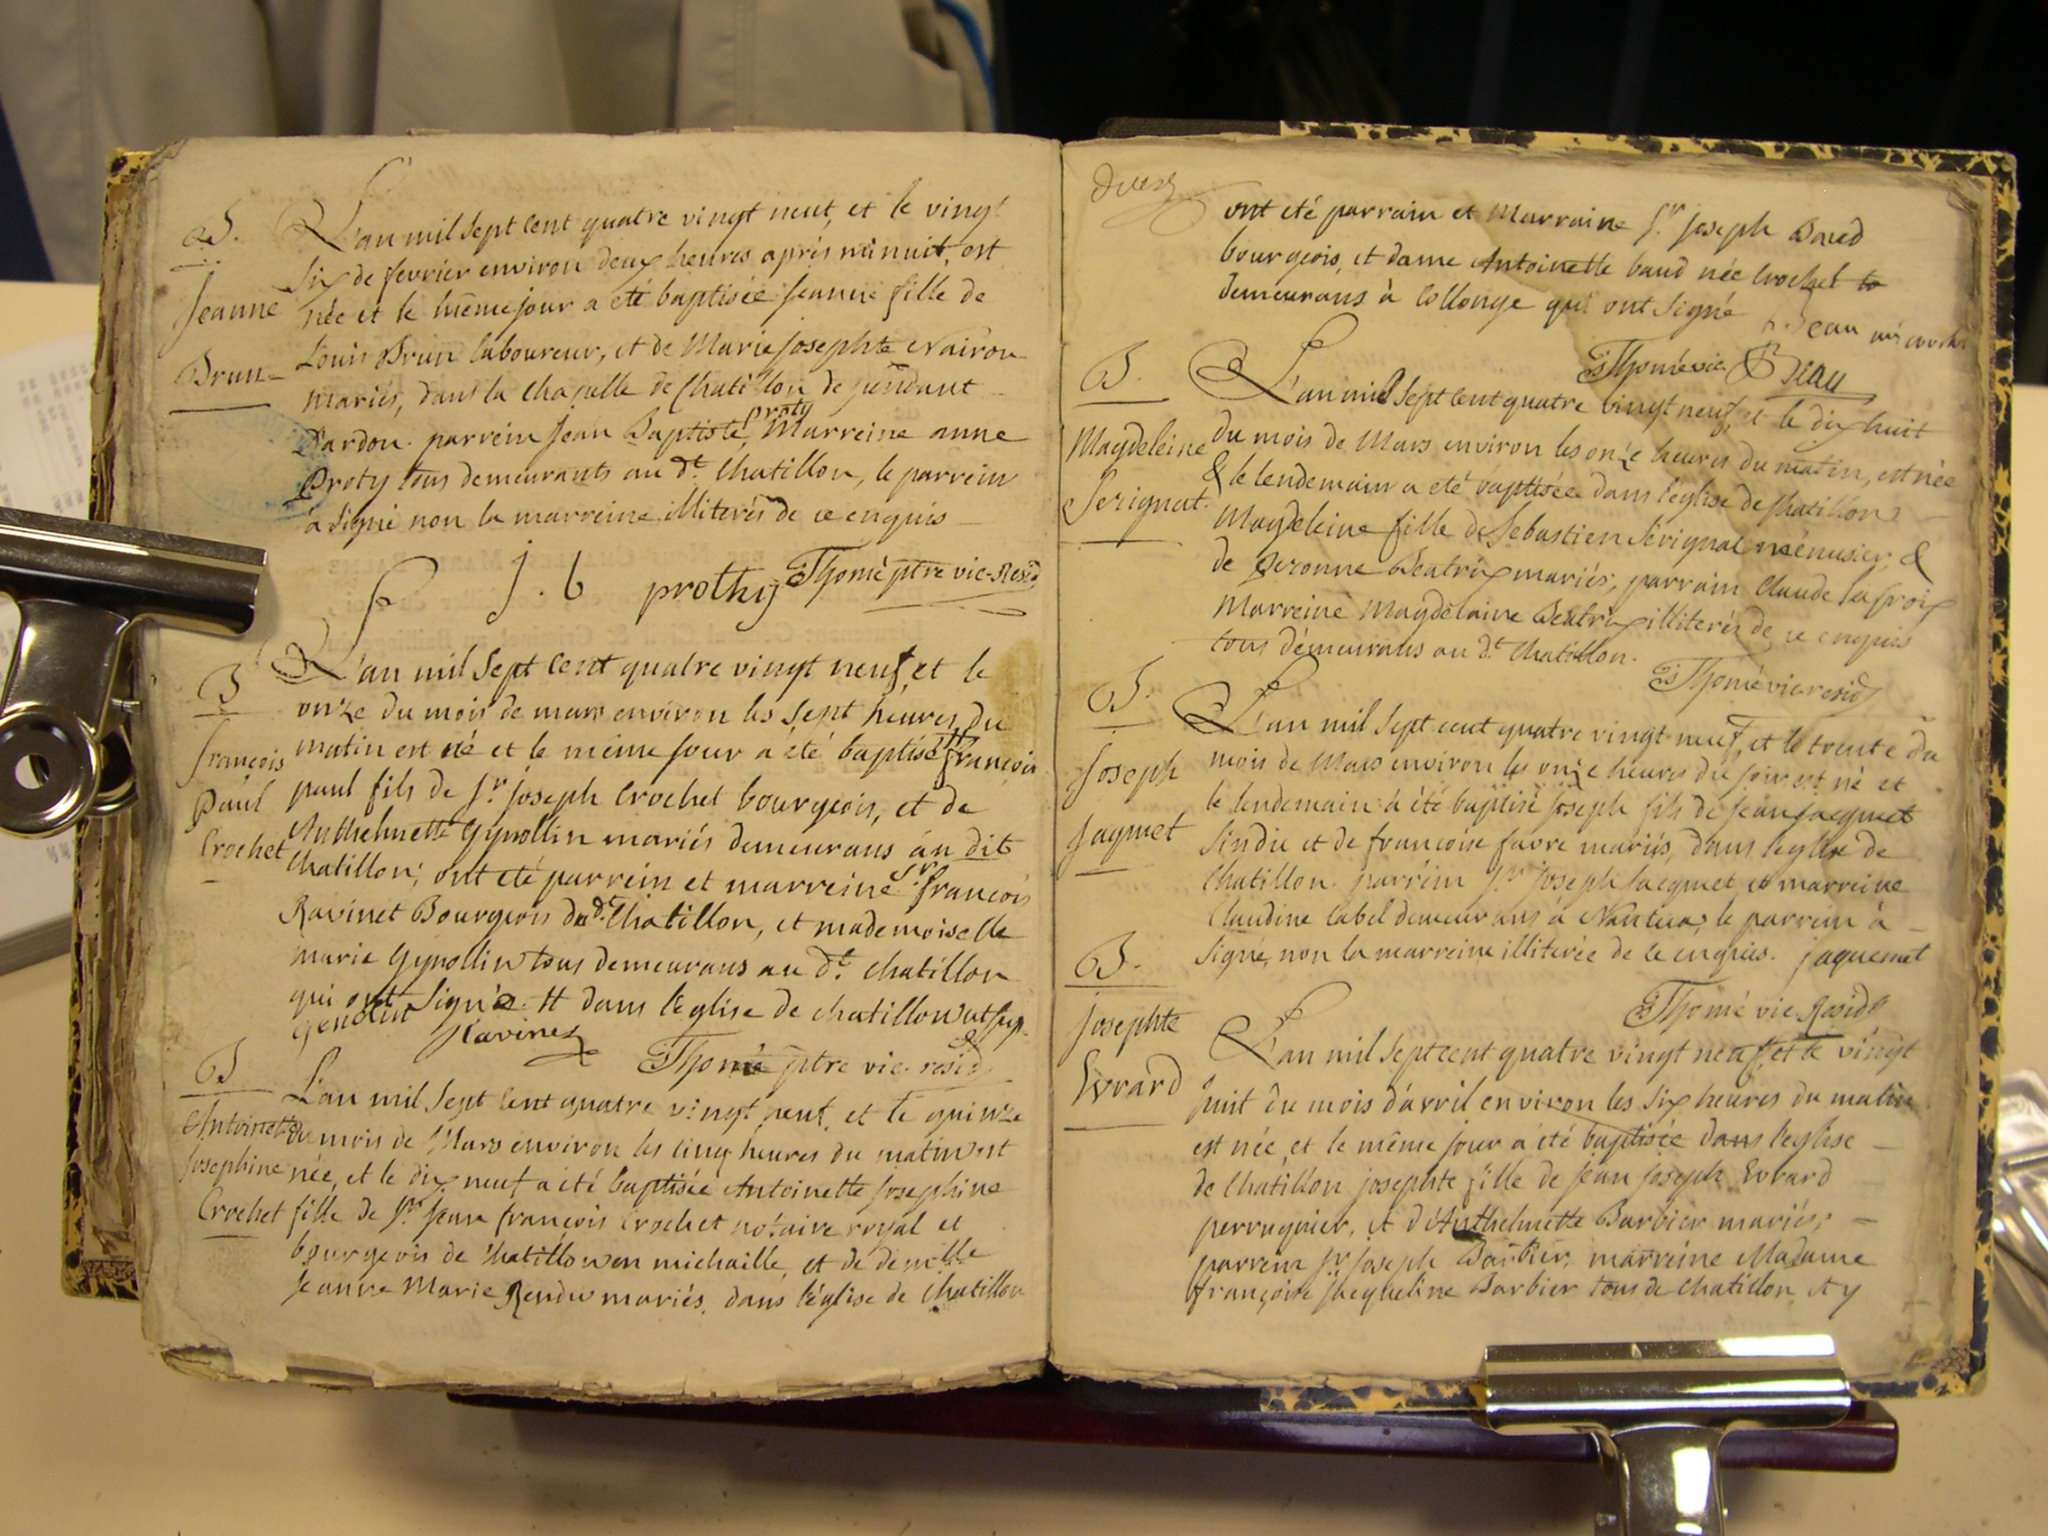 B.
Jeanne
Brun
L'an mil sept cent quatre vingt neuf, et le vingt
six de fevrier environ deux heures après minuit, est
née et le même jour a été baptisée Jeanne fille de
Louis Brun laboureur, et de Marie josephte
mariés, dans la chapelle de Chatillon
Dardon. parrein jean Baptiste proty, Marreine anne
Proty tous demeurants au dt. Chatillon, le parrein
a signé non la marreine illiterés de ce enquis
j. b prothy Thomé ptre vic. Resid
B
françois
paul
Crochet
L'an mil sept cent quatre vingt neuf, et le
onze du mois de mars environ les sept heures du
matin est né et le même jour a été baptisé # françois
paul fils de Sr. joseph Crochet bourgeois, et de
Anthelmette Gynollin mariés demeurans au dit
Chatillon; ont été parrein et marreine Sr. françois
Ravinet Bourgeois du dt. Chatillon, et mademoiselle
marie Gynollin tous demeurans au dt. Chatillon
qui ont signé. # dans l'eglise de chatillon
genolin Ravinet
Thomé ptre vic. resid
B
Antoinette
Josephine
Crochet
L'an mil sept cent quatre vingt neuf, et le quinze
du mois de Mars environ les cinq heures du matin est
née, et le dix neuf a été baptisée Antoinette Josephine
fille de Sr. Jean françois Crochet notaire royal et
bourgeois de Chatillon en michaille, et de demlle
Jeanne Marie Rendu mariés, dans l'église de Chatillon
ont été parrain et Marraine Sr. joseph
bourgeois, et dame Antoinette baud née Crochet
demeurans à Collonge qui ont signé
Thomé vic. Beau
B.
Magdeleine
Serignat.
L'an mil sept cent quatre vingt neuf, et le dix huit
du mois de Mars environ les onze heures du matin, est née
& le lendemain a eté baptisée dans l'église de Chatillon
Magdeleine fille de Sebastien Sérignat menusier, &
de Peronne Beatrix mariés, parrain Claude lafroix
Marreine Magdelaine Beatrix illiterés de ce enquis
tous démeurans au dt. Chatillon.
Thomé vic resid
B.
Joseph
Jaqmet
L'an mil sept cent quatre vingt neuf, et le trente du
mois de Mars environ les onze heures du soir est né et
le lendemain à été baptisé joseph fils de jean jacqmet
sindic et de francoise favre mariés, dans l'eglise de
Chatillon. parréin Sr. joseph Jacqmet et marreine
Claudine Cabel demeurans à Nantua, le parrein à
signé, non la marreine illiterée de ce enquis. jaquemet
Thomé vic Resid
B.
Josephte
Evrard
L'an mil sept cent quatre vingt neuf, et le vingt
huit du mois d'avril environ les six heures du matin
est née, et le même jour a été baptisée dans l'eglise
de Chatillon josephte fille de jean joseph Evrard
perruquier, et d'Anthelmette Barbier mariés;
parrein Sr. joseph Barbier, marreine Madame
françoise jacqueline Barbier tous de Chatillon et y